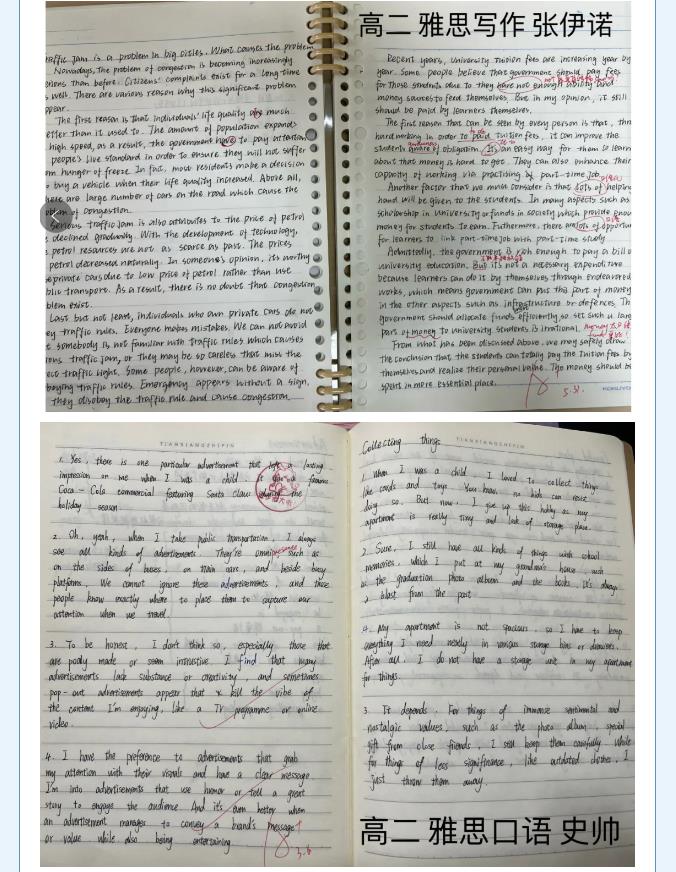 高二 雅思写作 张伊诺
traffic Jam is a problem in big cities. What causes the problem
Nowadays, The problem of congestion is becoming increasingly
than before. Citizens' complaints exist for a long time
well. There are various reason why this significant problem
appear.
The first reason is that individuals' life quality is much
better than it used to. The amount of population expands
high speed, as a result, the government have to pay attention
people's live standard in order to ensure they will not suffer
hunger of freeze. In fact, most residents make a decision
buy a vehicle when their life quality increased. Above all,
are large number of cars on the road which cause the
problem of congestion.
Serious traffic jam is also attributes to the price of petrol
declined gradually. With the development of technology,
petrol resources are not as scarce as past. The prices
petrol decreased naturally. In someone's opinion, it's worthy
private cars due to low price of petrol rather than use
public transport. As a result, there is no doubt that congestion
problem exist.
Last but not least, individuals who own private cars do not
traffic rules. Everyone makes mistakes. We can not avoid
somebody is not familiar with traffic rules which causes
traffic jam, or they may be so careless that miss the
traffic light. Some people, however, can be aware of
traffic rules. Emergency appears without a sign,
they disobey the traffic rule and cause congestion.
Recent years, University Tuition fees are increasing year by
year. Some people believe that government should pay fees
for those students due to they have not enough ability and
money sources to feed themselves. But in my opinion, it still
should be paid by learners themselves.
The first reason that can be seen by every person is that,
hard working in order to paid Tuition fees, it can improve the
students aware of obligation. It's an easy way for them to learn
about that money is hard to get. They can also enhance their
capacity of working via practising by part-time job.
Another factor that we must consider is that lots of helping
hand will be given to the students. In many aspects such as
scholarship in University or funds in society which provide
money for students to earn. Futhermore, there are lots of
for learners to link part-time job with part-time study.
Admittedly, the government is rich enough to pay a bill
university education. But it's not a necessary expenditure
because learners can do it by themselves through endeavored
works, which means government can put this part of money
in the other aspects such as infrastructure or defences. The
government should allocate funds efficiently so set such a
part of money to university students is irrational.
From what has been discussed above, we may safely draw
the conclusion that the students can totally pay the Tuition fees by
themselves and realize their personal value. The money should be
spent in more essential place.
3.31.
TIANXIANGZHIPIN
1. Yes, there is one particular advertisement that left a lasting
impression on me when I was a child. It was a famous
Coca-Cola commercial featuring Santa Claus enjoying the
holiday season
2. Oh, yeah, when I take public transportation, I always
see all kinds of advertisements. They're omnipresence such as
on the sides of buses, on train cars, and beside busy
platforms. We cannot ignore these advertisements, and those
people know exactly where to place them to capture our
attention when we travel.
3. To be honest, I don't think so, especially those that
are poorly made or seem intrusive. I find that many
advertisements lack substance or creativity, and sometimes
pop-out advertisements appear that kill the vibe of
the content I'm enjoying, like a TV programme or online
video.
4. I have the preference to advertisements that grab
my attention with their visuals and have a clear message.
I'm into advertisements that use humor or tell a great
story to engage the audience. And it's even better when
an advertisement manages to convey a brand's message
or value while also being entertaining
3.6
Collecting things
TIANXIANGZHIPIN
1. When I was a child, I loved to collect things
like cards and toys. You know, no kids can resist
doing so. But now, I give up this hobby as my
apartment is really tiny and lack of storage place.
2. Sure, I still have all kinds of things with school
memories, which I put at my grandma's house such
as the graduation photo album and the books. It's always
a blast from the past
4. My apartment is not spacious, so I have to keep
everything I need neatly in various storage bins or drawers.
After all, I do not have a storage unit in my apartment
for things.
3. It depends. For things of immense sentimental and
nostalgic values, such as the photo album, special
gift from close friends, I still keep them carefully. While
for things of less significance, like outdated clothes, I
just throw them away.
高二 雅思口语 史帅